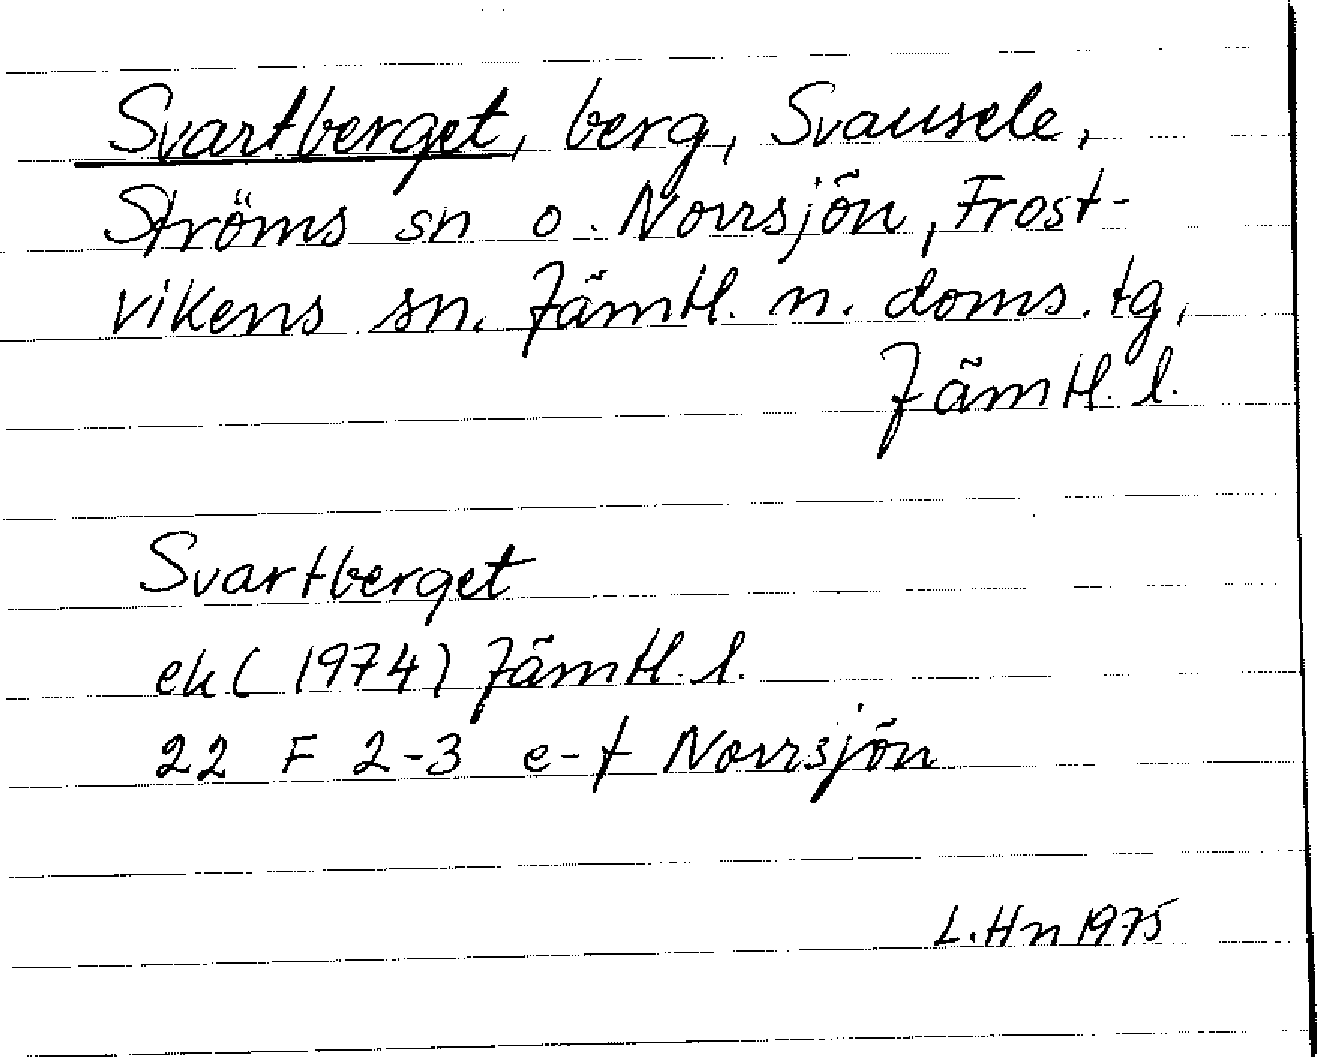 Svartberget, berg, Svansele,
Ströms sn o. Norrsjön, Frost-
vikens sn. Jämtl. n. doms. tg,
Jämtl. l.
Svartberget
ek (1974) Jämtl. l.
22 F 2-3 e-f Norrsjön
L. Hn 1975